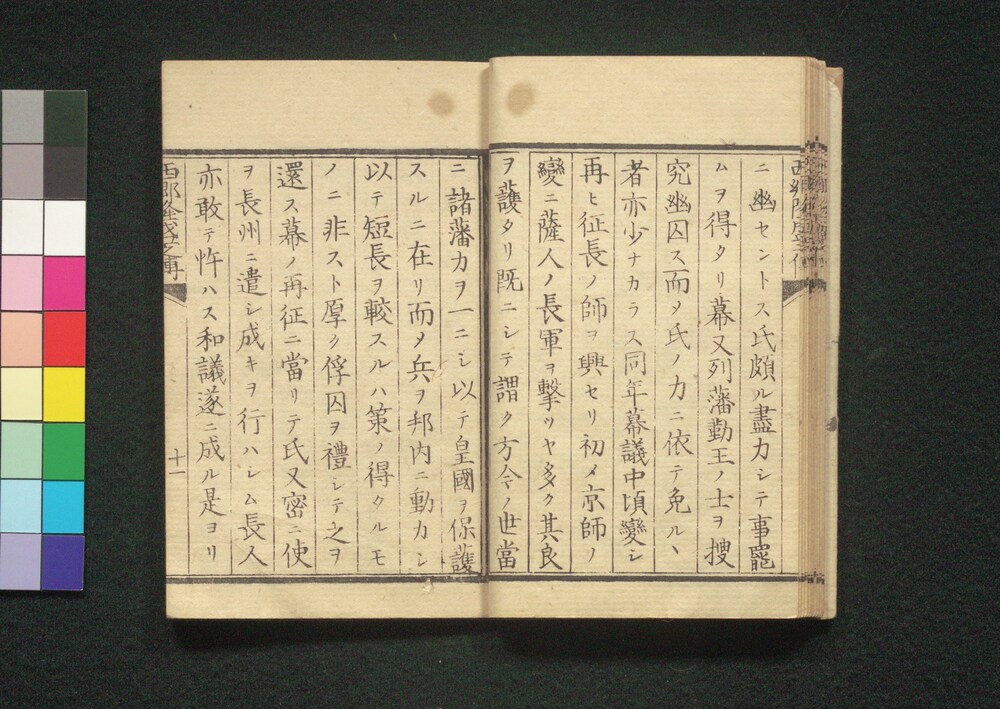 ニ幽セントス氏頗ル盡力シテ事寵
ムヲ得タリ幕又列藩勤王ノ士ヲ搜
究幽囚ス而〆氏ノ力ニ依テ免ルヽ
者亦少ナカラス同年幕議中頃變シ
再ヒ征長ノ師ヲ興セリ初メ京師ノ
變ニ薩人ノ長軍ヲ擊ツヤ多ク其良
ヲ護タリ既ニシテ謂ク方今ノ世當
ニ諸藩力ヲ一ニシ以テ皇國ヲ保護
スルニ在リ而〆兵ヲ邦内ニ動カシ
以テ短長ヲ較スルハ策ノ得タルモ
ノニ非スト厚ク俘囚ヲ禮シテ之ヲ
還ス幕ノ再征ニ當リテ氏又密ニ使
ヲ長州ニ遣シ成キヲ行ハシム長人
亦敢テ忤ハス和議遂ニ成ル是ヨリ
十一